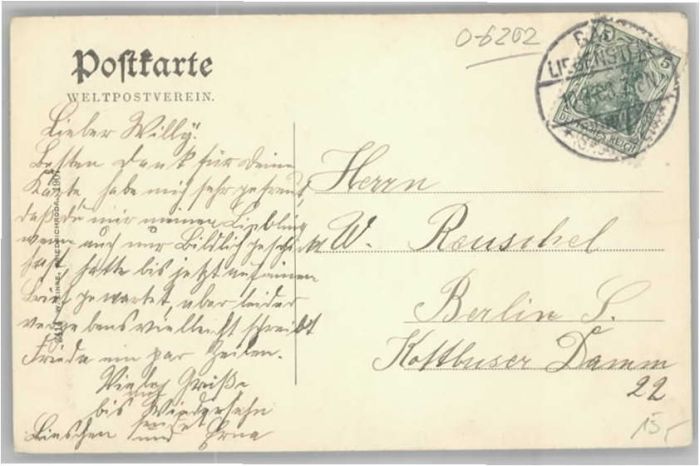 O-6202
Postkarte
WELTPOSTVEREIN.
BAD
LIEBENSTEIN
5
DEUTSCHES REICH
Lieber Willy!
Besten Dank für deine
Karte habe mich sehr gefreut,
daß du mir meinen Liebling
wenn auch nur Bildlich geschickt
hast, hatte bis jetzt auf einen
Brief gewartet, aber leider
vergebens vielleicht schreibt
Frieda ein par Zeilen.
Viele Grüße
bis Wiedersehn
sendet
Lieschen und Erna
Herrn
W. Reuschel
Berlin S.
Kottbuser Damm
22
15,-